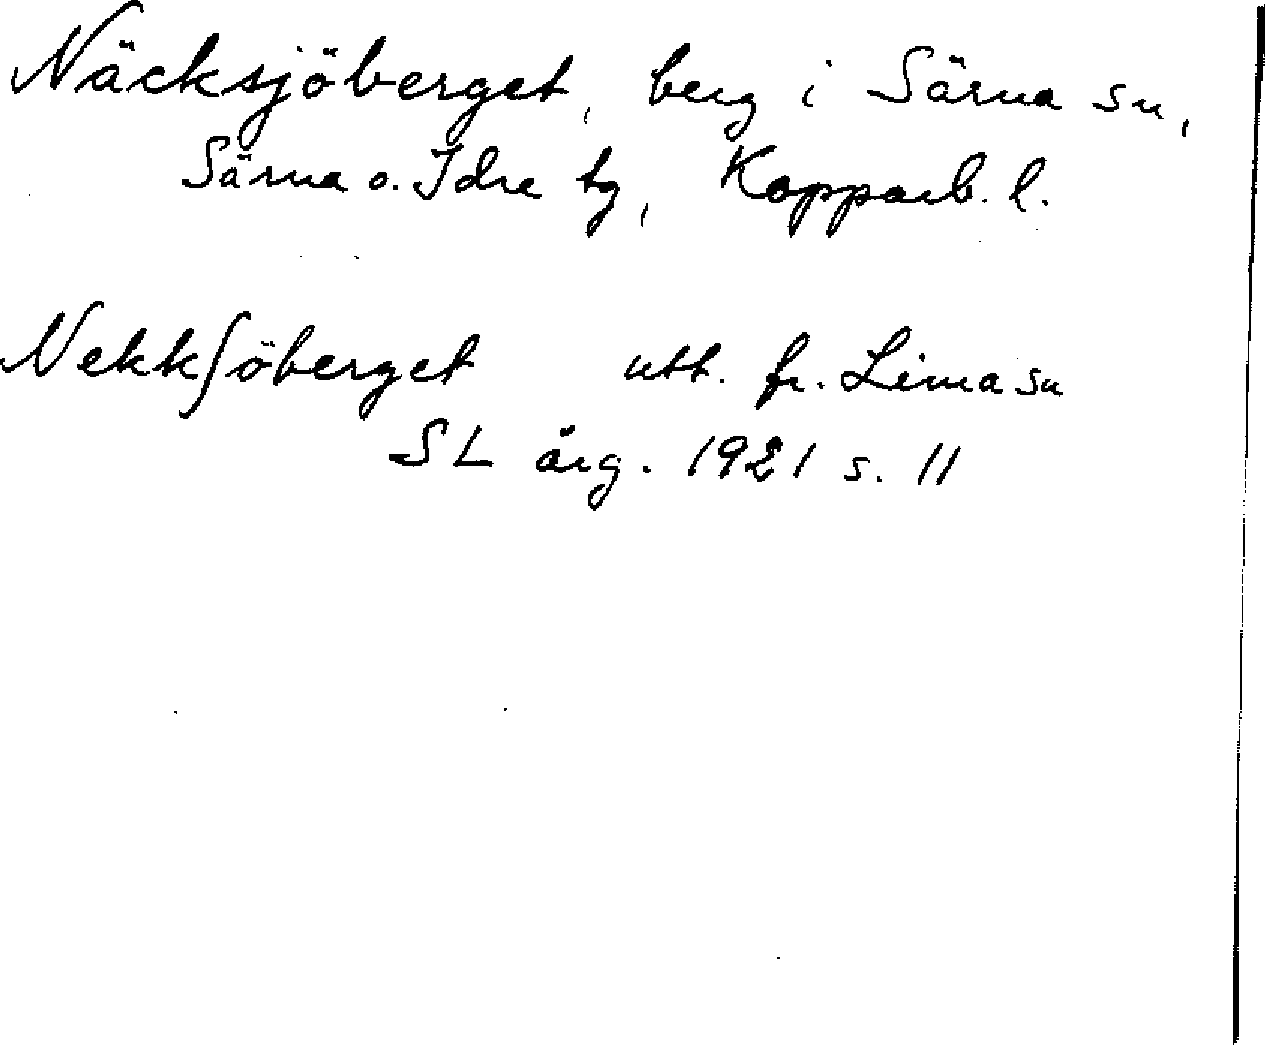 Näcksjöberget, berg i Särna sn,
Särna o. Idre tg, Kopparb. l.
Nekkʃöberget utt. fr. Lima sn
SL årg. 1921 s. 11